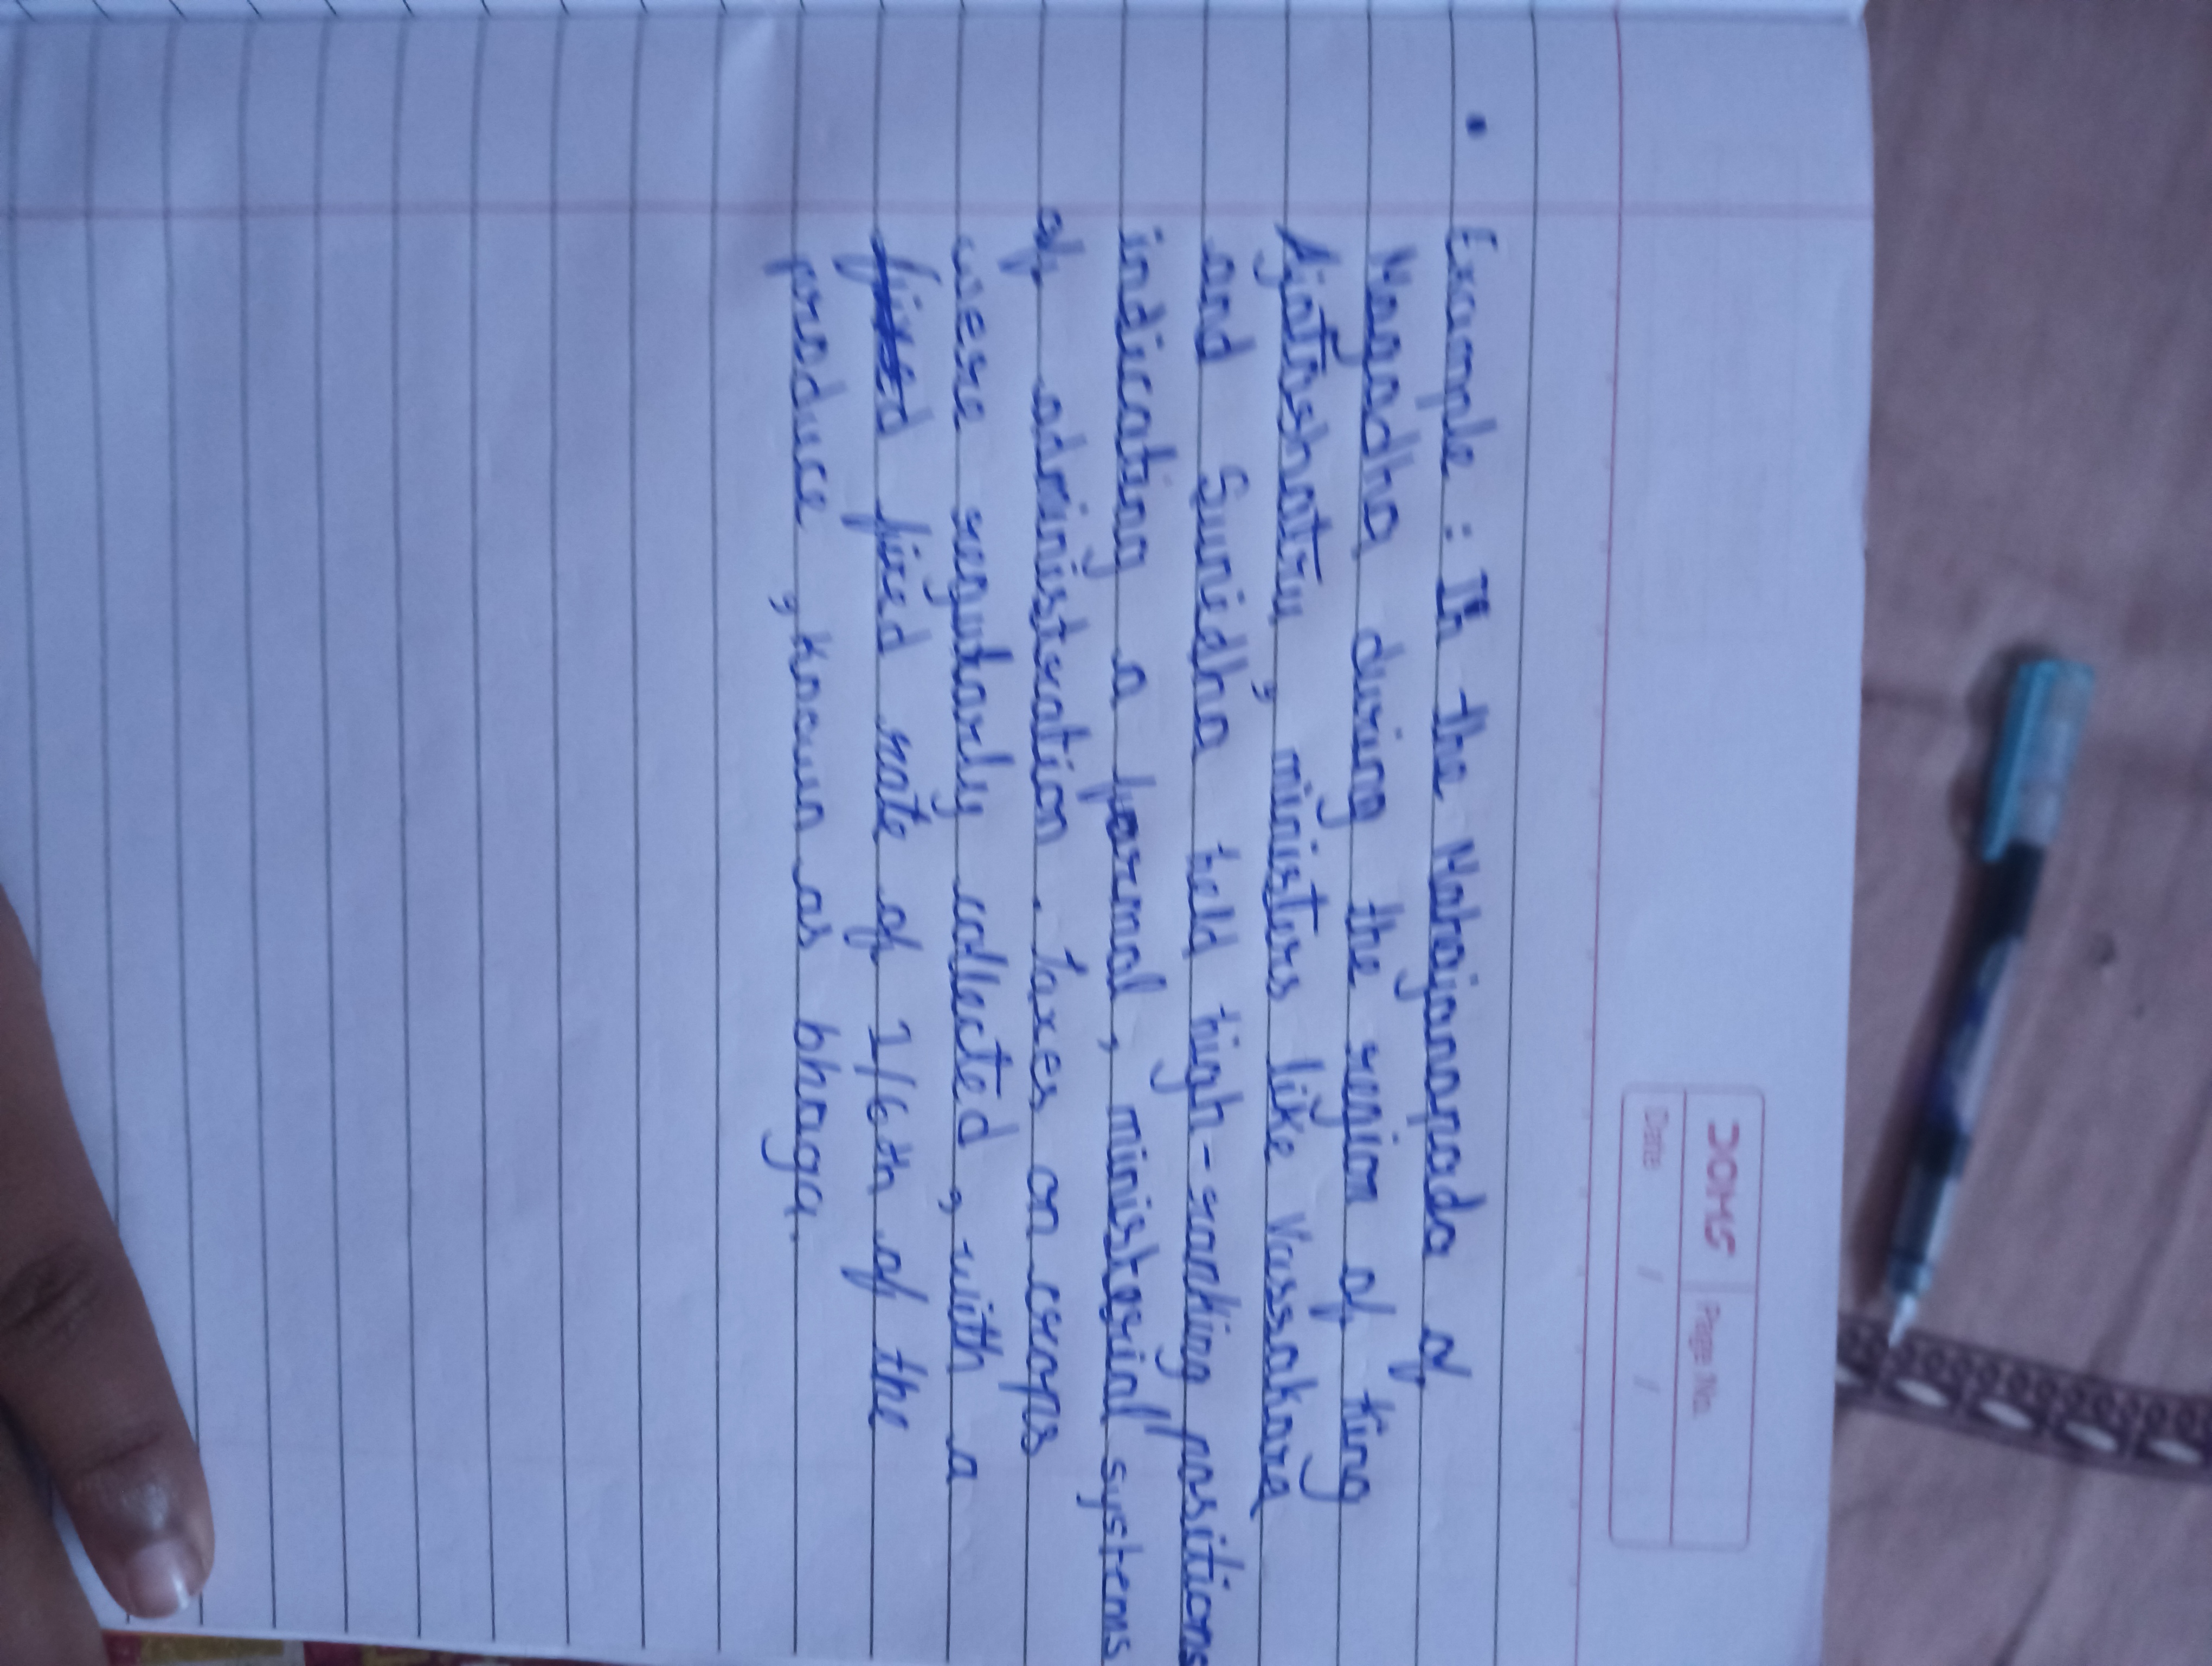 DOMS Page No.
Date / /
• Example : In the Mahajanapada of
Magadha during the region of King
Ajatashatru, ministers like Vassakara
and Suniedha held high-ranking positions
indicating a formal, ministerial systems
of administration. Taxes on crops
were regularly collected, with a
fixed fixed rate of 1/6th of the
produce, known as bhaga.